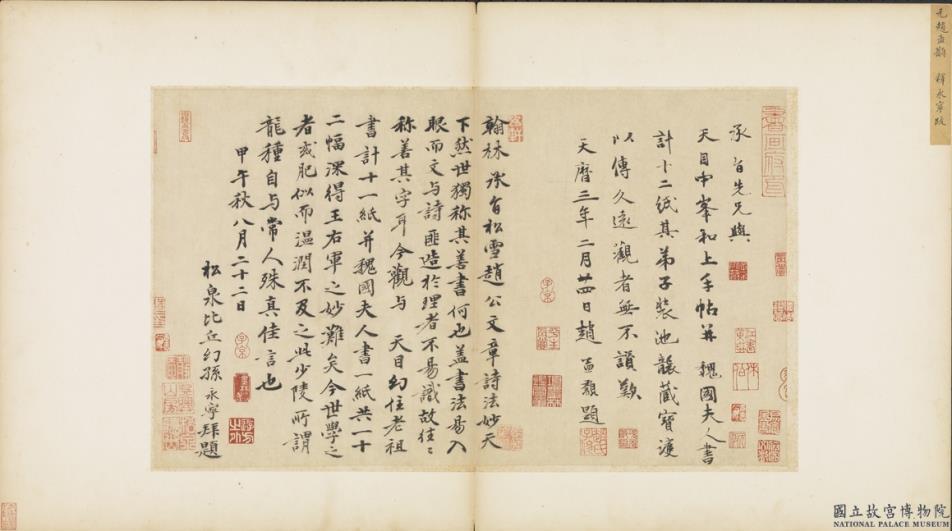 元趙孟頫 釋永寧跋
承旨先兄與
天目中峯和上手帖并 魏國夫人書
計十二紙其弟子裝池襲藏寶護
以傳久遠觀者無不讃歎
天曆三年二月廿四日趙 孟頖題
翰林承旨松雪趙公文章詩法妙天
下然世獨称其善書何也盖書法易入
眼而文与詩匪造於理者不易識故往〻
称善其字耳今觀与 天目幻住老祖
書計十一紙并魏國夫人書一紙共一十
二幅深得王右軍之妙灘矣今世學之
者或肥似而温潤不及之此少陵所謂
龍種自与常人殊真佳言也
甲午秋八月二十二日
松泉比丘幻孫永寧拜題
國立故宮博物院
NATIONAL PALACE MUSEUM